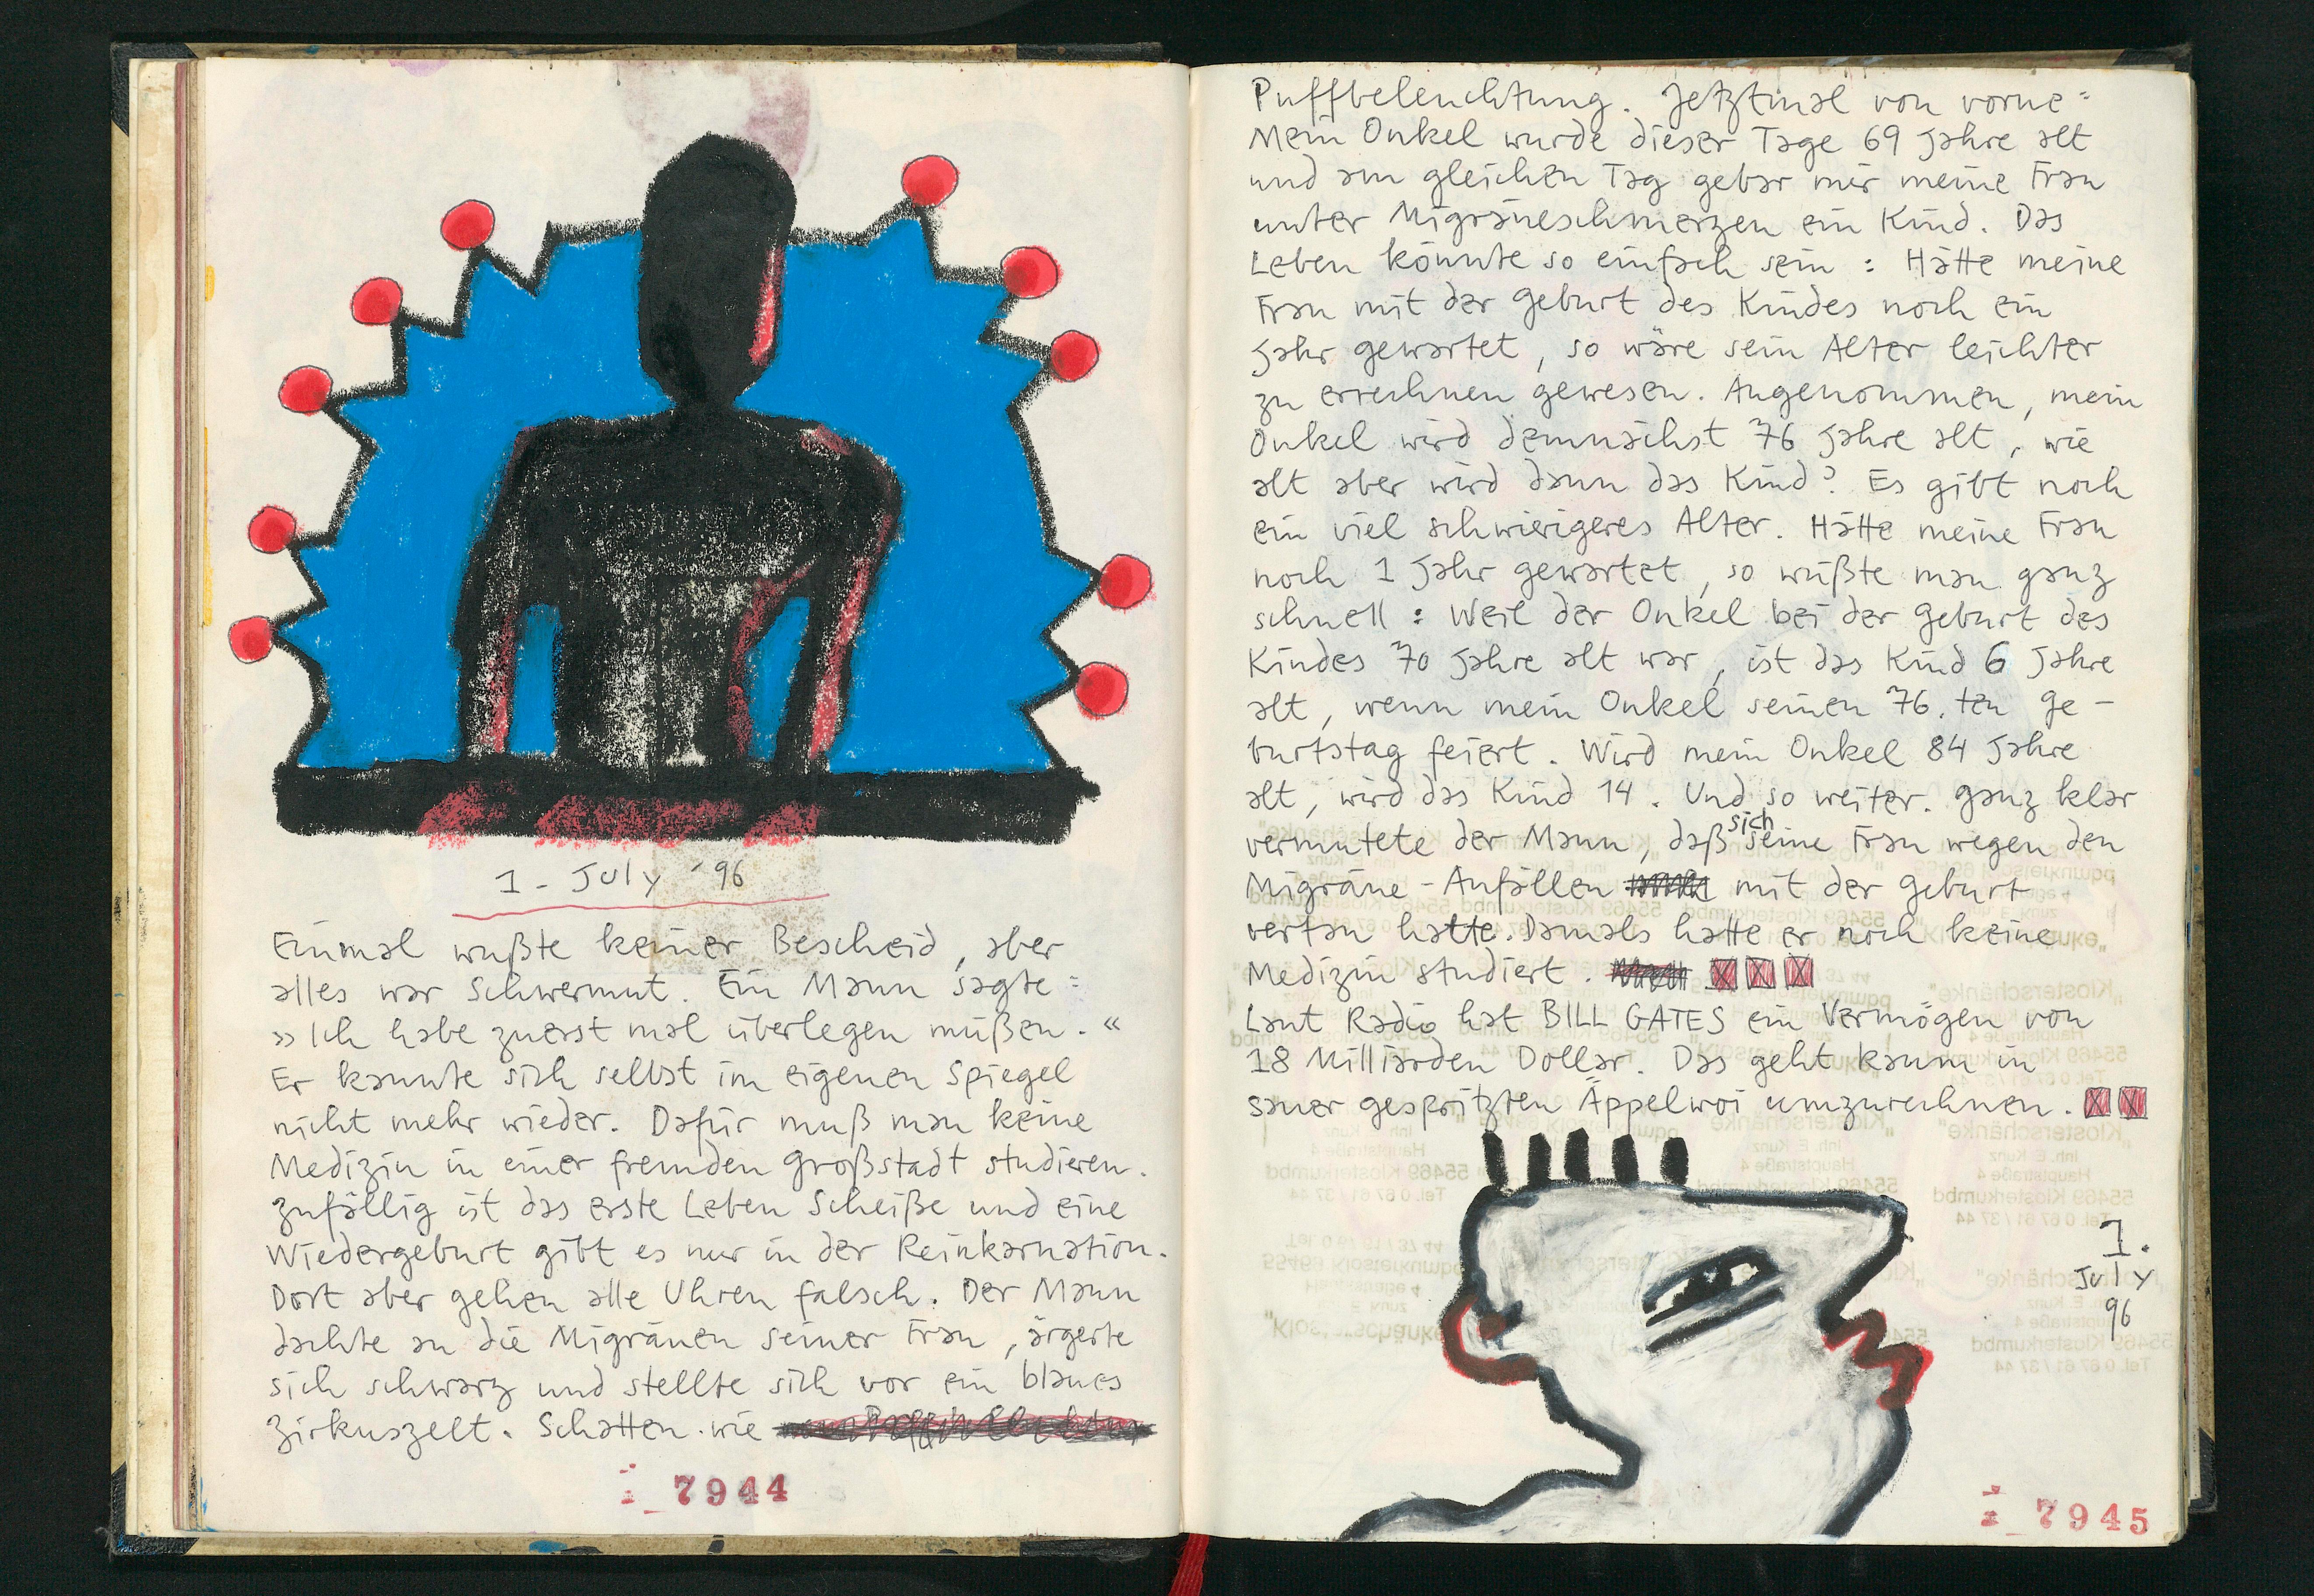 1. July '96
Einmal wußte keiner Bescheid, aber
alles war Schwermut. Ein Mann sagte:
»Ich habe zuerst mal überlegen müßen.«
Er kannte sich selbst im eigenen Spiegel
nicht mehr wieder. Dafür muß man keine
Medizin in einer fremden Großstadt studieren.
Zufällig ist das erste Leben Scheiße und eine
Wiedergeburt gibt es nur in der Reinkarnation.
Dort aber gehen alle Uhren falsch. Der Mann
dachte an die Migränen seiner Frau, ärgerte
sich schwarz und stellte sich vor ein blaues
Zirkuszelt. Schatten wie
7944
Puffbeleuchtung. Jetztmal von vorne:
Mein Onkel wurde dieser Tage 69 Jahre alt
und am gleichen Tag gebar mir meine Frau
unter Migräneschmerzen ein Kind. Das
Leben könnte so einfach sein: Hätte meine
Frau mit der Geburt des Kindes noch ein
Jahr gewartet, so wäre sein Alter leichter
zu errechnen gewesen. Angenommen, mein
Onkel wird demnächst 76 Jahre alt, wie
alt aber wird dann das Kind? Es gibt noch
ein viel schwierigeres Alter. Hätte meine Frau
noch 1 Jahr gewartet, so wüßte man ganz
schnell: Weil der Onkel bei der Geburt des
Kindes 70 Jahre alt war, ist das Kind 6 Jahre
alt, wenn mein Onkel seinen 76.ten Ge-
burtstag feiert. Wird mein Onkel 84 Jahre
alt, wird das Kind 14. Und so weiter. Ganz klar
vermutete der Mann, daß sich seine Frau wegen den
Migräne-Anfällen mit der Geburt
vertan hatte. Damals hatte er noch keine
Medizin studiert.
Laut Radio hat BILL GATES ein Vermögen von
18 Milliarden Dollar. Das geht kaum in
sauer gespritzten Äppelwoi umzurechnen.
1.
July
96
7945